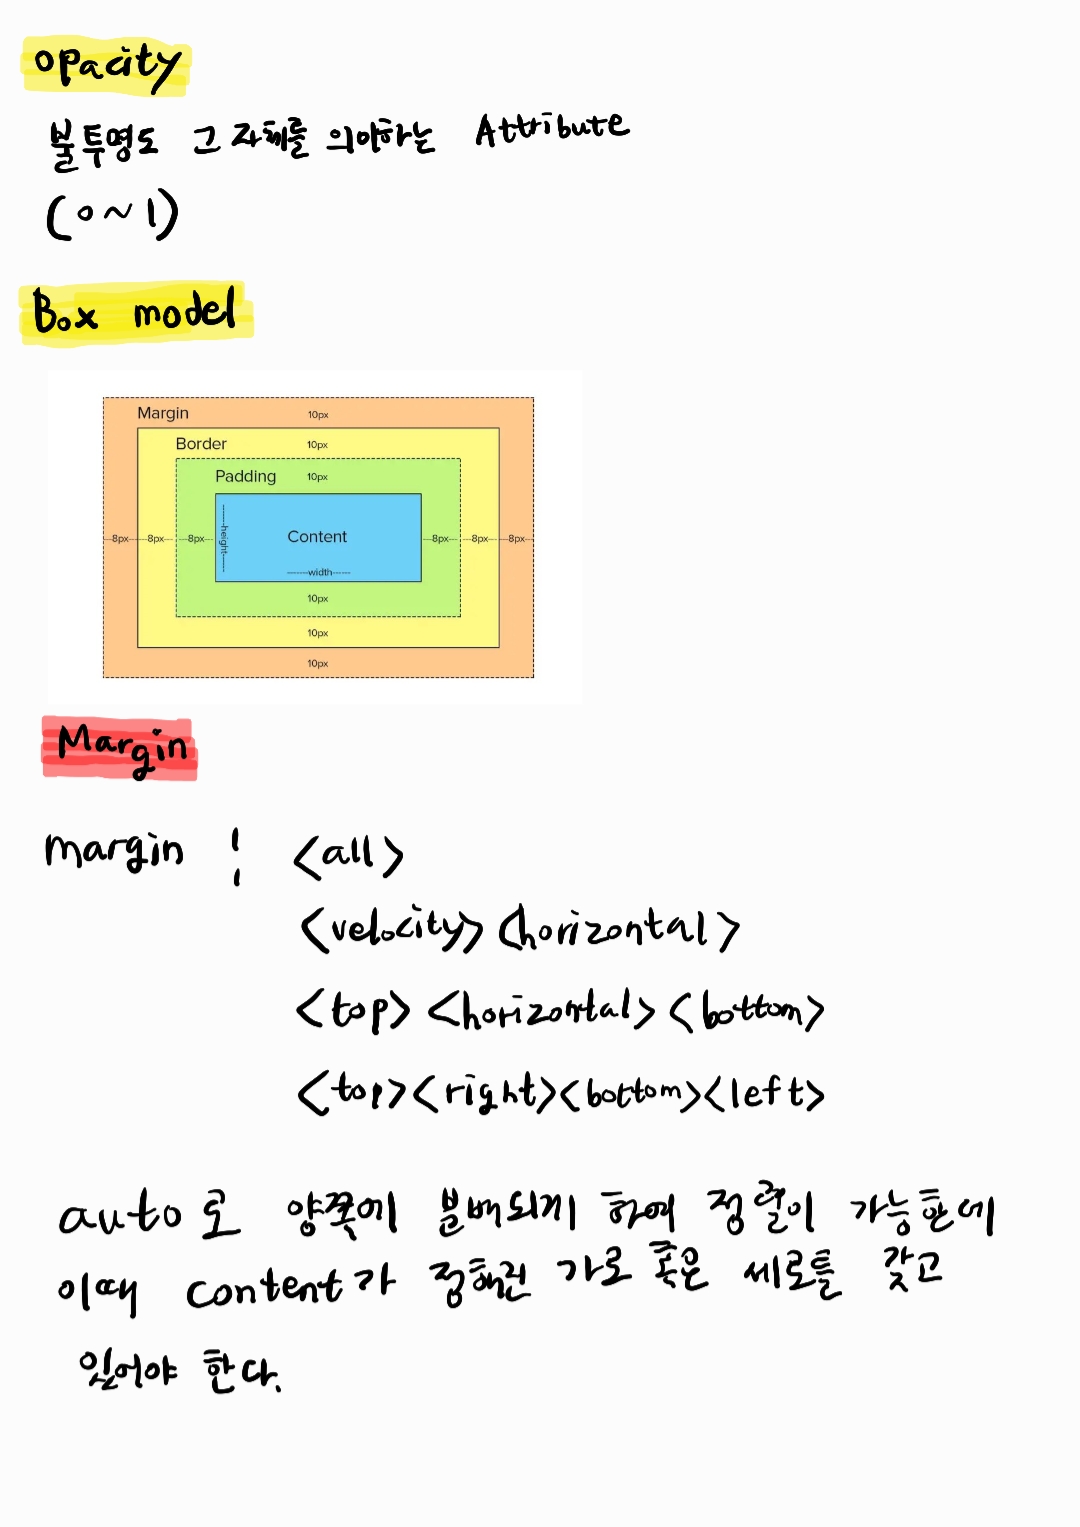 opacity
불투명도 그 자체를 의미하는 Attribute
(0~1)
Box model
Margin 10px
Border 10px
Padding 10px
8px 8px 8px height Content 8px 8px 8px
width
10px
10px
10px
Margin
margin : <all>
<velocity> <horizontal>
<top> <horizontal> <bottom>
<top> <right> <bottom> <left>
auto로 양쪽에 분배되게 하여 정렬이 가능한데
이때 content가 정해진 가로 혹은 세로를 갖고
있어야 한다.